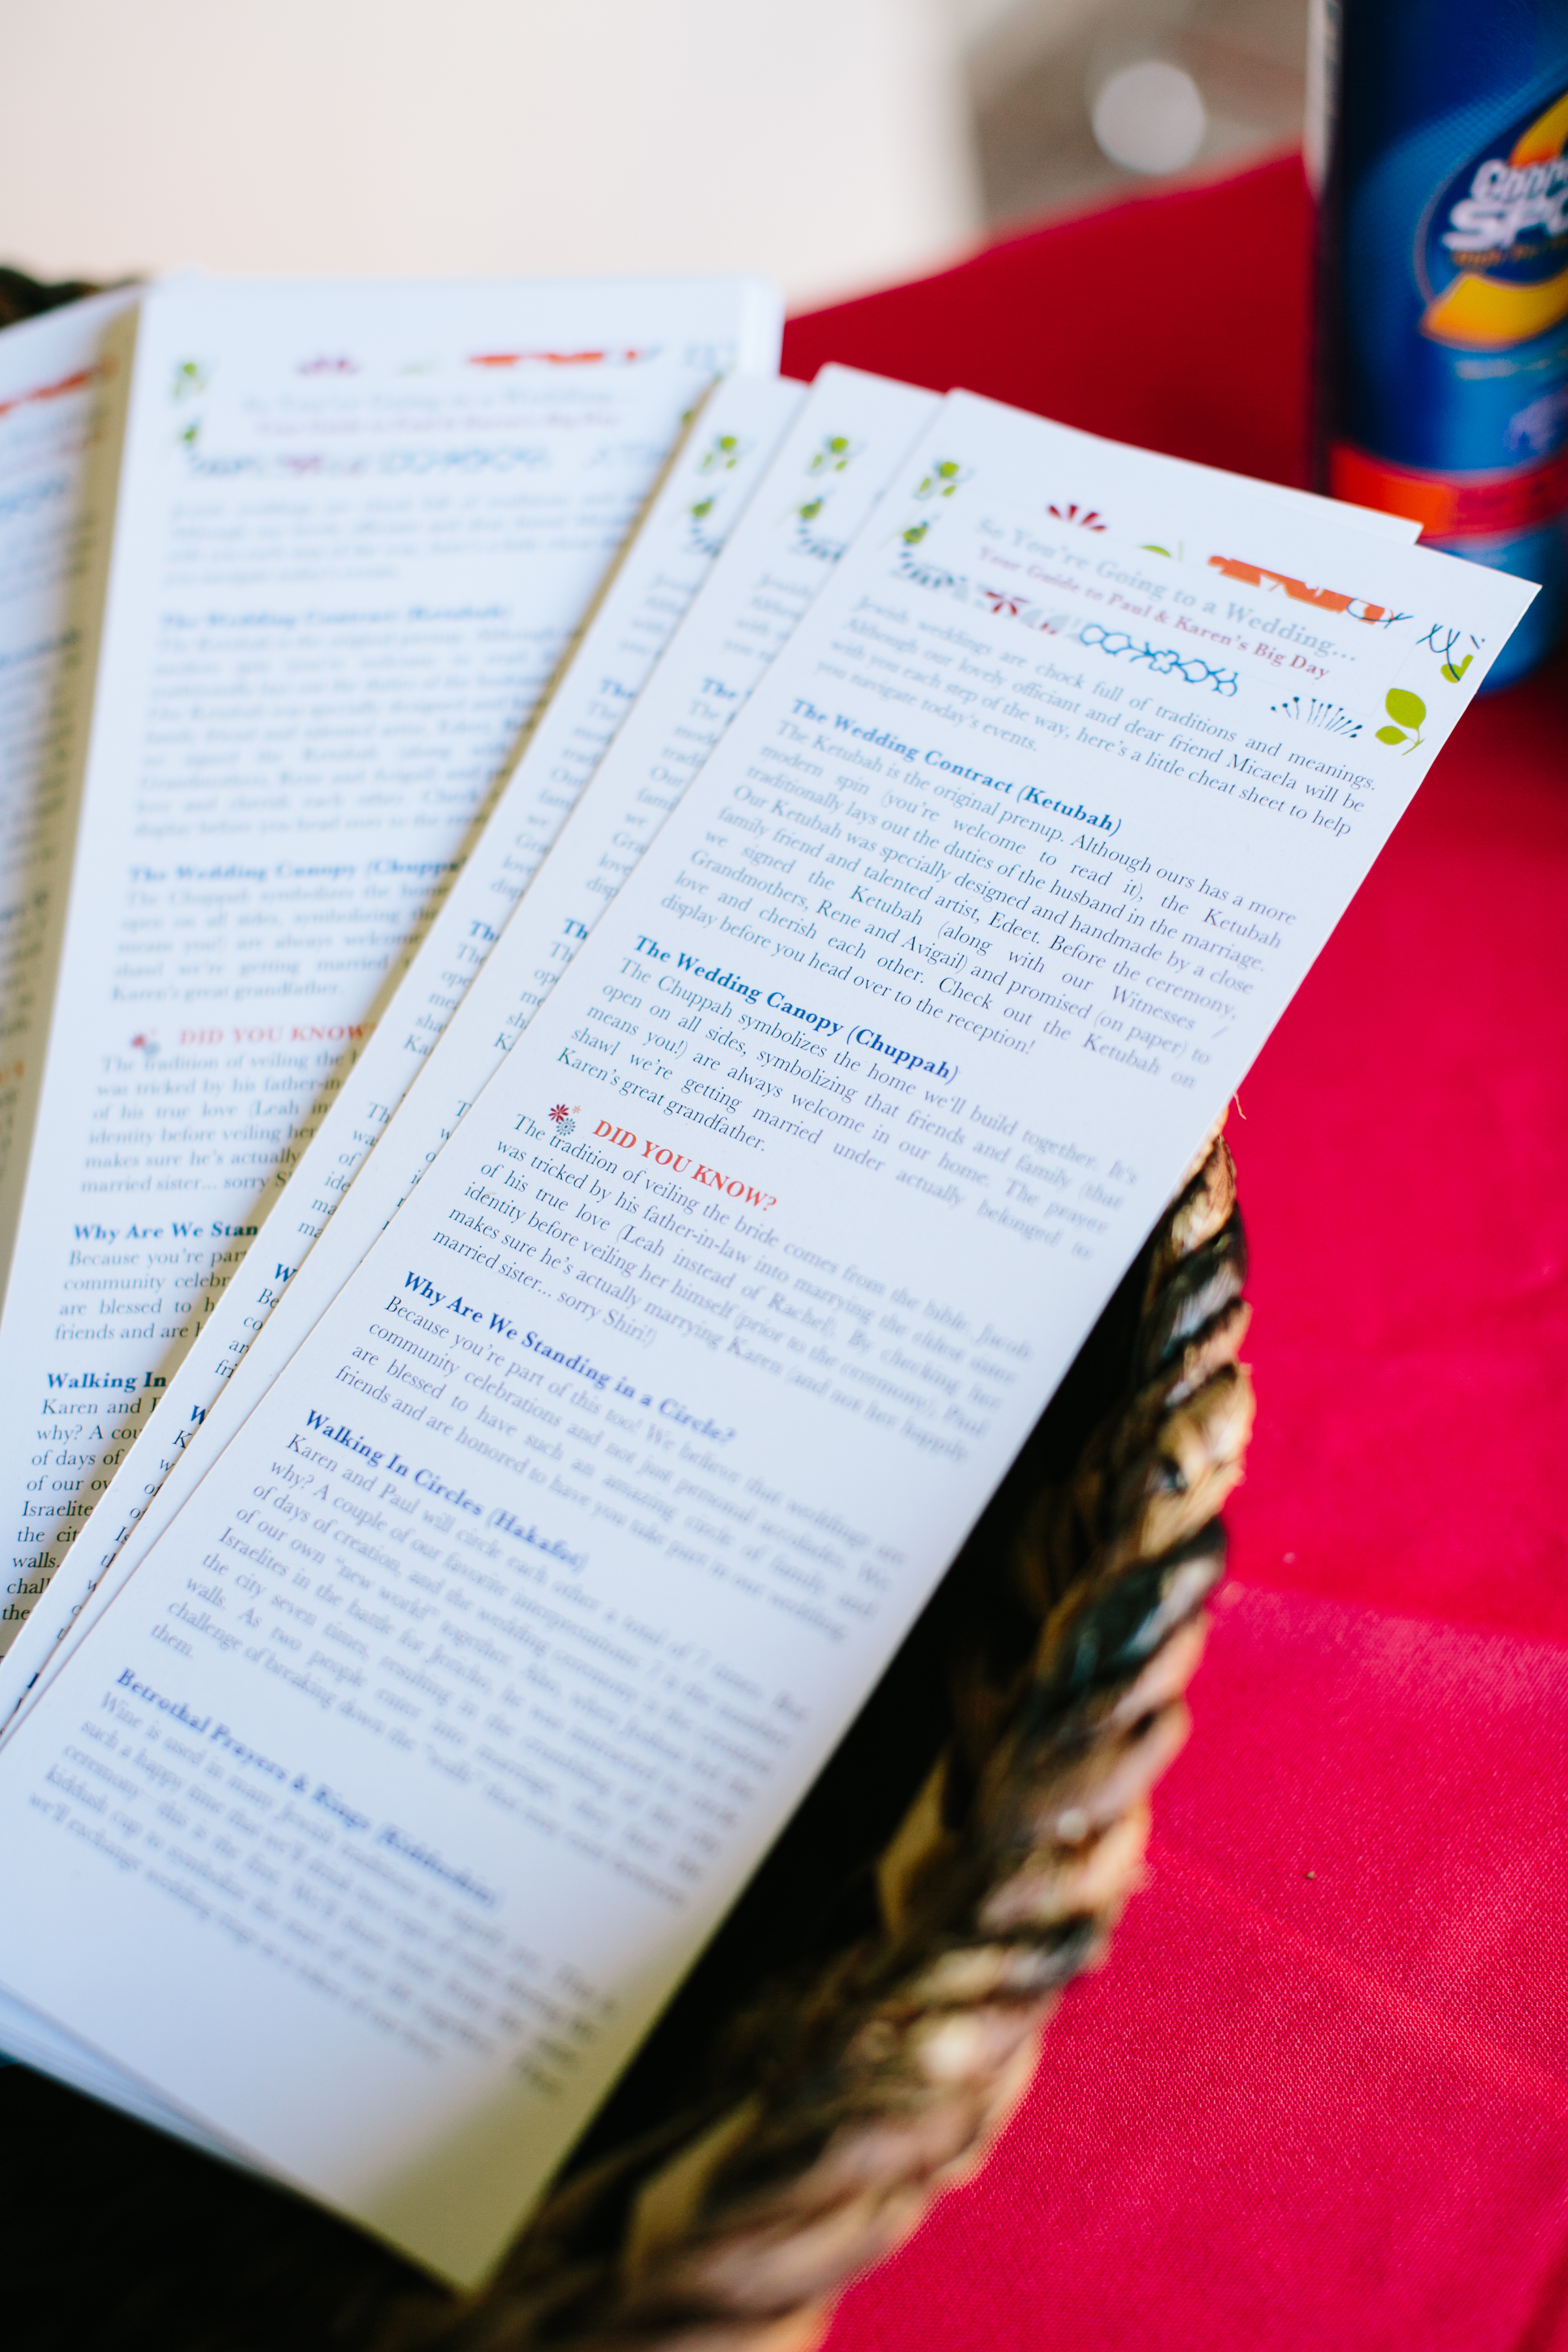 So You're Going to a Wedding...
Your Guide to Paul & Karen's Big Day
Jewish weddings are chock full of traditions and meanings.
Although our lovely officiant and dear friend Micaela will be
with you each step of the way, here's a little cheat sheet to help
you navigate today's events.
The Wedding Contract (Ketubah)
The Ketubah is the original prenup. Although ours has a more
modern spin (you're welcome to read it), the Ketubah
traditionally lays out the duties of the husband in the marriage.
Our Ketubah was specially designed and handmade by a close
family friend and talented artist, Edeet. Before the ceremony,
we signed the Ketubah (along with our Witnesses /
Grandmothers, Rene and Avigail) and promised (on paper) to
love and cherish each other. Check out the Ketubah on
display before you head over to the reception!
The Wedding Canopy (Chuppah)
The Chuppah symbolizes the home we'll build together. It's
open on all sides, symbolizing that friends and family (that
means you!) are always welcome in our home. The prayer
shawl we're getting married under actually belonged to
Karen's great grandfather.
DID YOU KNOW?
The tradition of veiling the bride comes from the bible. Jacob
was tricked by his father-in-law into marrying the oldest sister
of his true love (Leah instead of Rachel). By checking her
identity before veiling her himself (prior to the ceremony), Paul
makes sure he's actually marrying Karen (and not her happily
married sister... sorry Shiri!)
Why Are We Standing in a Circle?
Because you're part of this too! We believe that weddings are
community celebrations and not just personal milestones. We
are blessed to have such an amazing circle of family and
friends and are honored to have you take part in our wedding.
Walking In Circles (Hakafot)
Karen and Paul will circle each other a total of 7 times. But
why? A couple of our favorite interpretations: 7 is the number
of days of creation, and the wedding ceremony is the creation
of our own "new world" together. Also, when Joshua led the
Israelites in the battle for Jericho, he was instructed to circle
the city seven times, resulting in the crumbling of the city
walls. As two people enter into marriage, they face the
challenge of breaking down the "walls" that exist between
them.
Betrothal Prayers & Rings (Kiddushin)
Wine is used in many Jewish traditions
such a happy time that we'll drink two cups
ceremony this is the first. We'll
kiddush cup to symbolize the
we'll exchange wedding rings